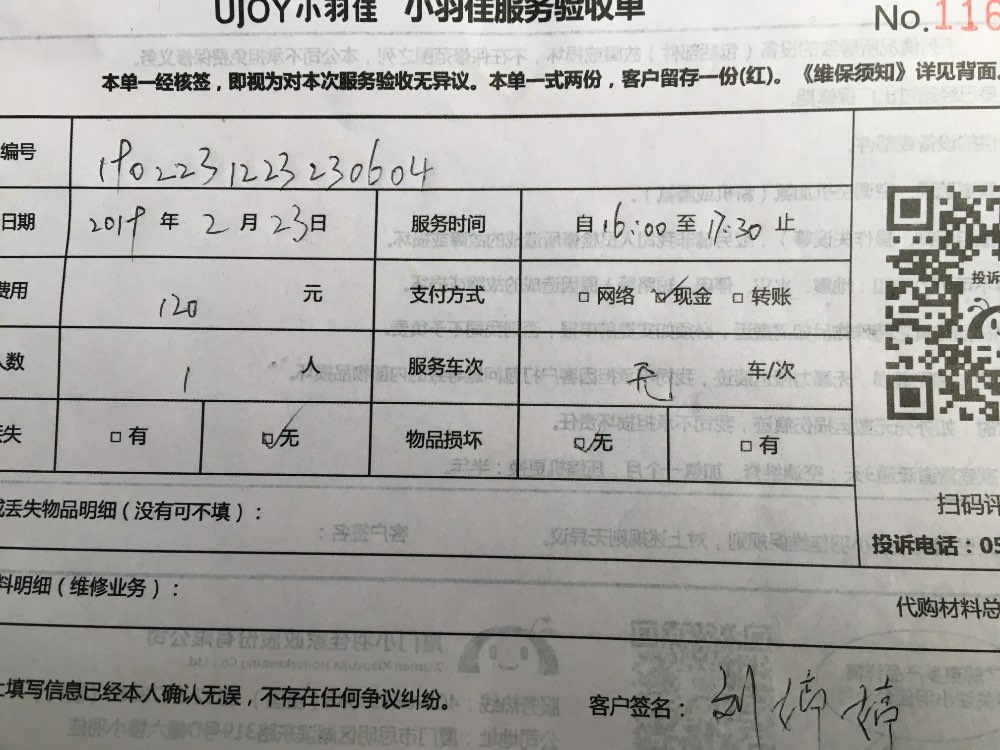 UJOY小羽佳 小羽佳服务验收单
No.116
本单一经核签，即视为对本次服务验收无异议。本单一式两份，客户留存一份(红)。《维保须知》详见背面。
编号 1902231223230604
日期 2019 年 2 月 23 日 服务时间 自 16:00 至 17:30 止
费用 120 元 支付方式 □ 网络 ☑ 现金 □ 转账
人数 1 人 服务车次 无 车/次
丢失 □ 有 ☑ 无 物品损坏 ☑ 无 □ 有
投诉
或丢失物品明细（没有可不填）：
扫码评
投诉电话：05
料明细（维修业务）：
代购材料总
上填写信息已经本人确认无误，不存在任何争议纠纷。
客户签名：刘婷婷